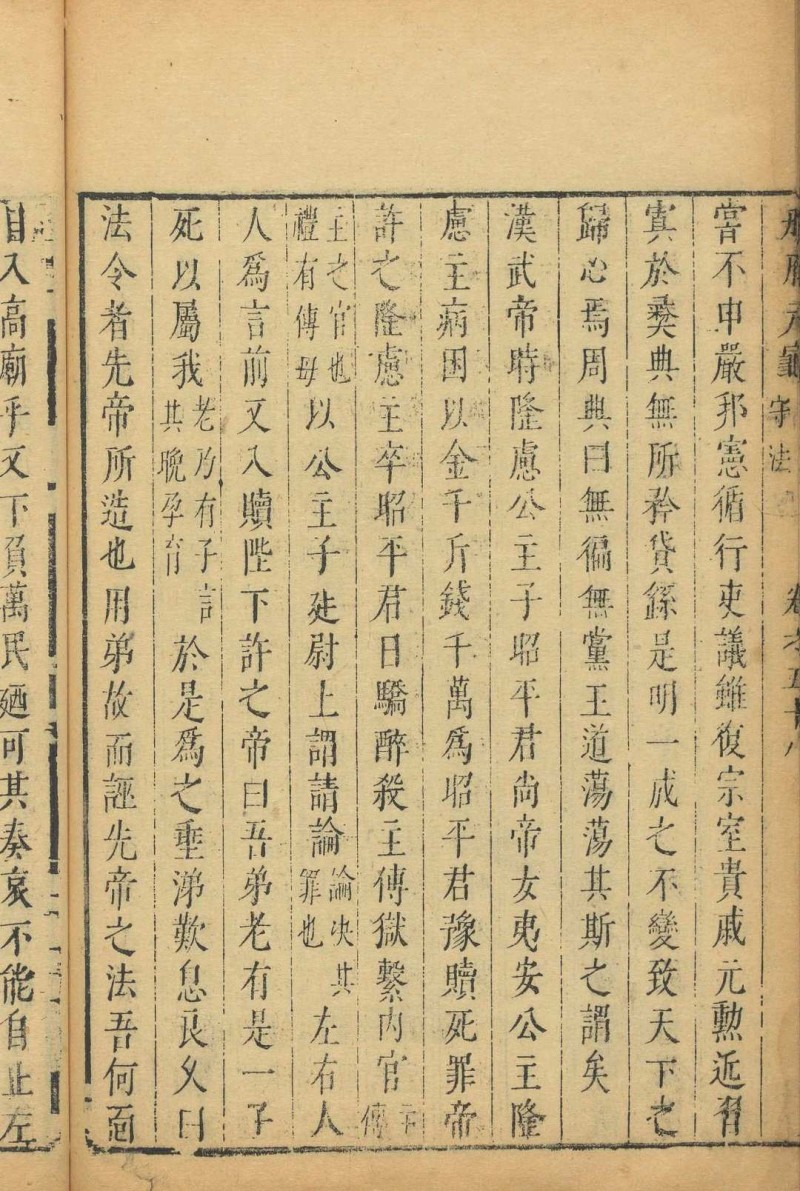 冊府元龜 守法 卷之五十八
嘗不申嚴邦憲循行吏議雖復宗室貴戚元勲近習
寘於彜典無所矜貸繇是明一成之不變致天下之
歸心焉周典曰無徧無黨王道蕩蕩其斯之謂矣
漢武帝時隆慮公主子昭平君尚帝女夷安公主隆
慮主病困以金千斤錢千萬爲昭平君豫贖死罪帝
許之隆慮主卒昭平君日驕醉殺主傅獄繫内官
主之官也禮有傅毋以公主子廷尉上謂請論論决其罪也左右人
人爲言前又入贖陛下許之帝曰吾弟老有是一子
死以屬我老乃有子言其晚孕育於是爲之垂涕歎息良久曰
法令者先帝所造也用弟故而誣先帝之法吾何面
目入高廟乎又下負萬民廼可其奏哀不能自止左